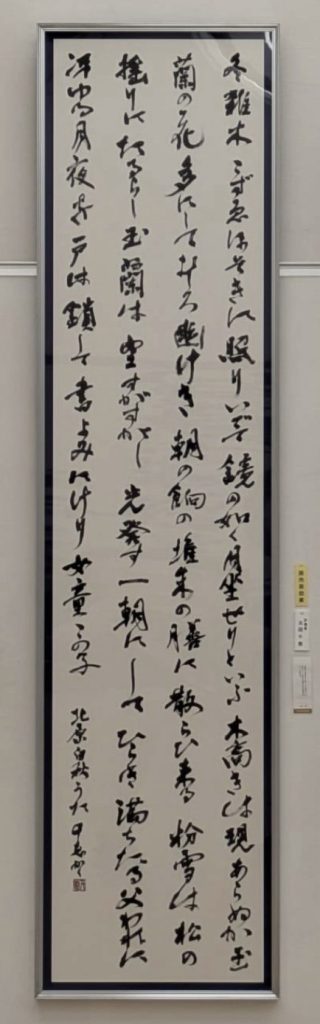 冬雑木こずゑほそきに照りいでて鏡の如く月坐せりといふ木高きは現あらぬか玉
蘭の花多にしてみな幽けき朝の餉の堆朱の膳に散らひ来る粉雪は松の
揺りにたるらし玉蘭は空すがすがし光発す一朝にしてひらき満ちたる父われに
冴ゆる月夜を戸は鎖して書よみにけり女童この子
北原白秋うた